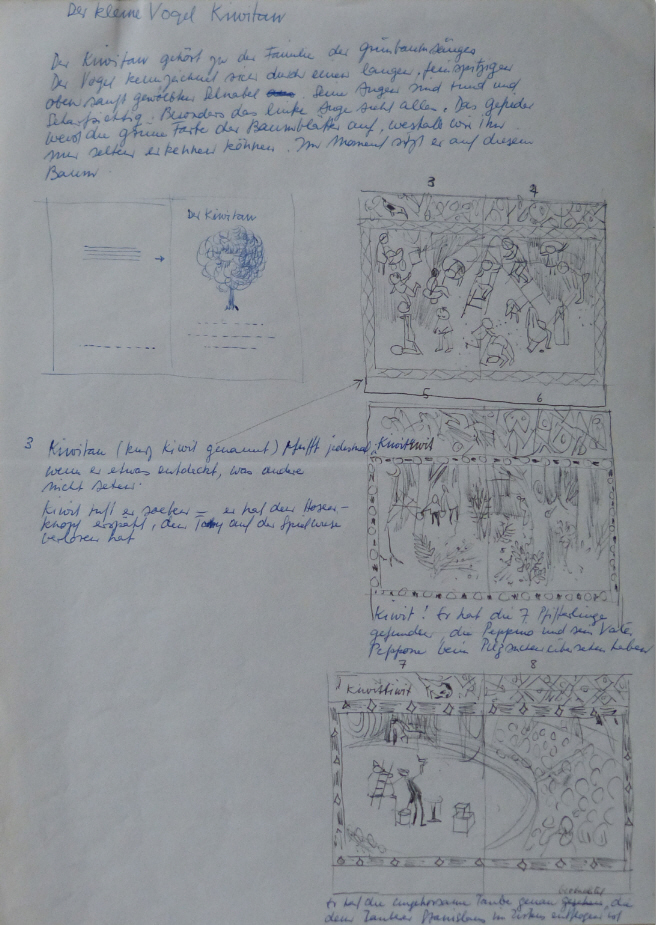 Der kleine Vogel Kiwitaw
Der Kiwitaw gehört zu der Familie der
Der Vogel kennzeichnet sich durch einen langen, feinspitzigen
oben sanft gewölbten Schnabel. Seine Augen sind rund und
Sehr Besonders das linke Auge sieht alles. Das Gefieder
weist die grüne Farbe der Baumblätter auf, weshalb wir ihn
nur selten erkennen können. Im Moment sitzt er auf diesem
Baum.
Der Kiwitaw
3
4
5
6
3 Kiwitaw (kurz Kiwit genannt) pfeifft jedesmal,
wenn er etwas entdeckt, was andere
nicht sehen.
Kiwit ruft er soeben = er hat den Hosen-
knopf erspäht, den Tony auf der Spielwiese
verloren hat
Kiwittiwit
Kiwit! Er hat die 7 Pfifferlinge
gefunden, die Peppino und sein Vater
Peppone beim Pilzsuchen übersehen haben
7
8
Kiwittiwit
Er hat die ungehorsame Taube genau gesehen, die
dem Zauberer Stanislaus im Zirkus entflogen ist